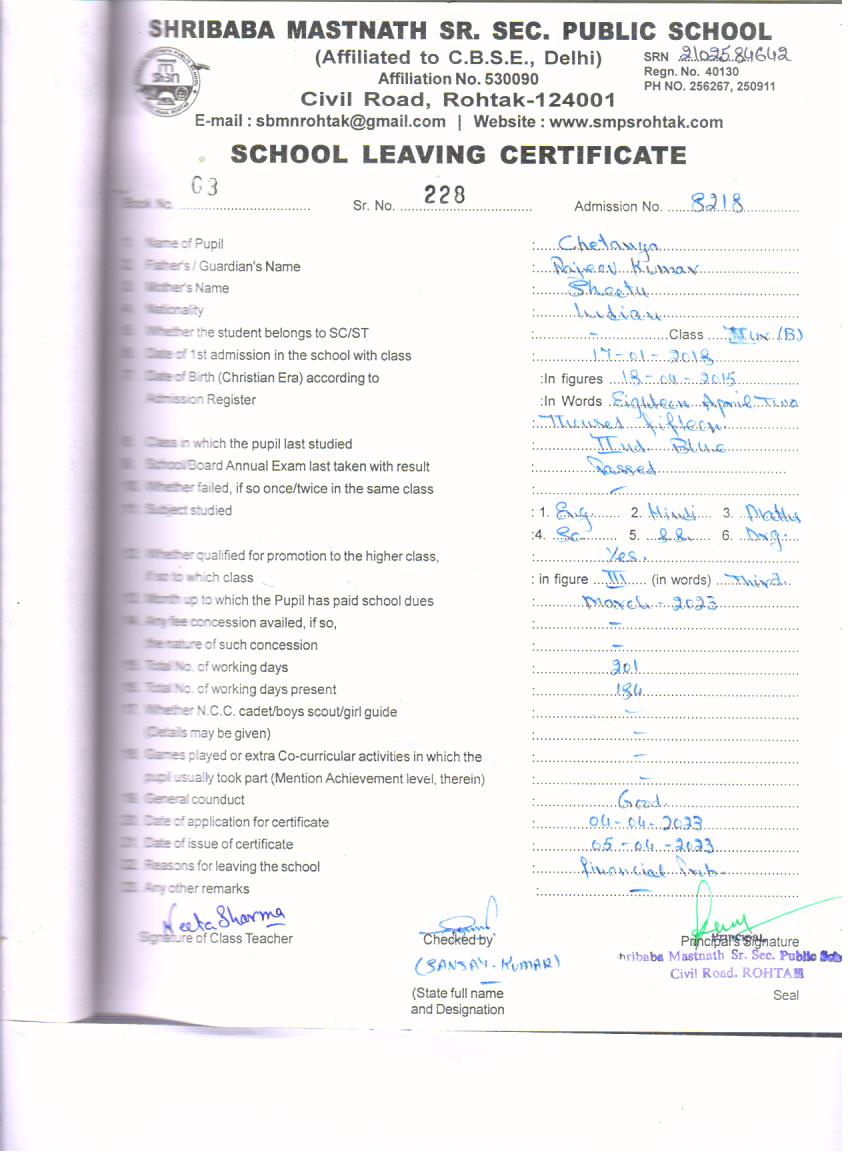 SHRIBABA MASTNATH SR. SEC. PUBLIC SCHOOL
(Affiliated to C.B.S.E., Delhi)
SRN 2102584642
Affiliation No. 530090
Regn. No. 40130
Civil Road, Rohtak-124001
PH NO. 256267, 250911
E-mail : sbmnrohtak@gmail.com | Website : www.smpsrohtak.com
SCHOOL LEAVING CERTIFICATE
Book No. 63 Sr. No. 228 Admission No. 8218
1. Name of Pupil : Chetanya
2. Father's / Guardian's Name : Rajeev Kumar
3. Mother's Name : Sheetu
4. Nationality : Indian
5. Whether the student belongs to SC/ST : - Class (B)
6. Date of 1st admission in the school with class : 17-01-2018
7. Date of Birth (Christian Era) according to :In figures 18-04-2015
Admission Register :In Words Eighteen April Two
: fifteen
8. Class in which the pupil last studied : IInd Blue
9. School/Board Annual Exam last taken with result : Passed
10. Whether failed, if so once/twice in the same class : -
11. Subject studied : 1. Eng. 2. Hindi 3. Maths
:4. Sc 5. S.S. 6. Drg.
12. Whether qualified for promotion to the higher class, : Yes.
if so to which class : in figure III (in words) Third.
13. Month up to which the Pupil has paid school dues : March - 2023
14. Any fee concession availed, if so, : -
the nature of such concession : -
15. Total No. of working days : 201
16. Total No. of working days present : 184
17. Whether N.C.C. cadet/boys scout/girl guide : -
(Details may be given) : -
18. Games played or extra Co-curricular activities in which the : -
pupil usually took part (Mention Achievement level, therein) : -
19. General counduct : Good.
20. Date of application for certificate : 04-04-2023
21. Date of issue of certificate : 05-04-2023
22. Reasons for leaving the school : Financial Prob.
23. Any other remarks : -
Neeta Sharma
Signature of Class Teacher Checked by Principal's Signature
(SANJAY-KUMAR)
hribaba Mastnath Sr. Sec. Public Sch
Civil Road. ROHTAK
(State full name Seal
and Designation